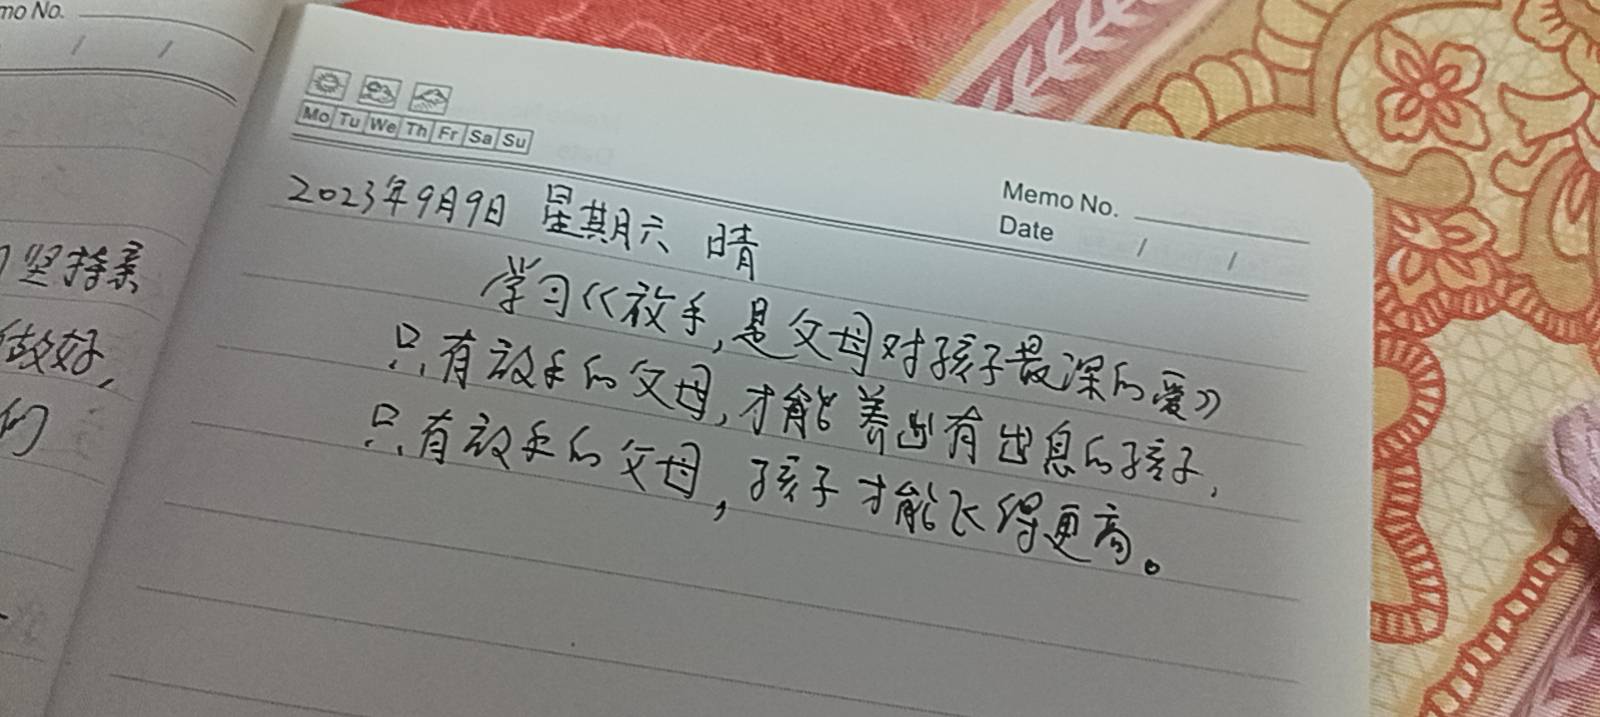 mo No.
/ /
坚持亲
做好,
的
Mo Tu We Th Fr Sa Su
Memo No.
Date / /
2023年9月9日 星期六 晴
学习《放手,是父母对孩子最深的爱》
只有放手的父母,才能养出有出息的孩子,
只有放手的父母,孩子才能飞得更高。